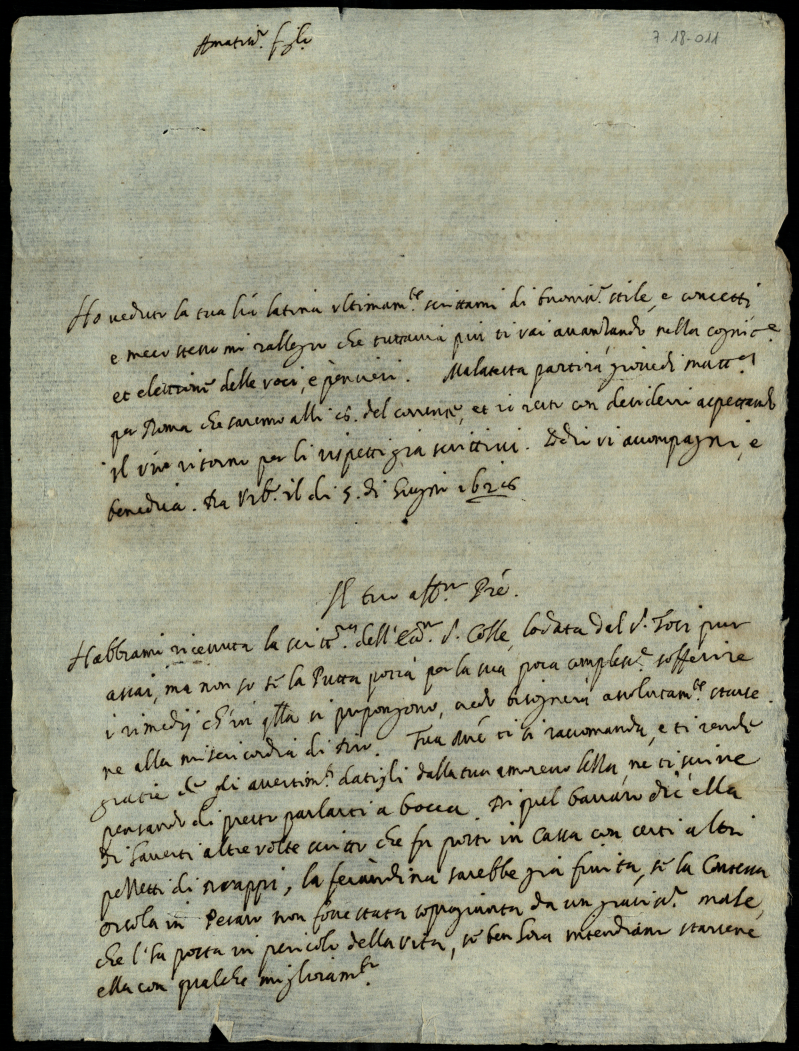 Amatiss.º figlo
7-18-011
Ho veduto la tua lrã latina ultimam.te scrittami di buoniss.º stile, e concetti
e meco stesso mi rallegro che tuttavia più ti vai avanzando nella cognit.e
et elettione delle voci, e pensieri. Malatesta partirà giovedi matt.a
per Roma che saremo alli del corrente, et si resta con desiderio aspettando
il vro ritorno per li rispetti già scrittivi. Iddio vi accompagni, e
benedica. Da Urb.º il di 5. di Giugno
Il tuo aff.mo Pre.
Habbiamo ricevuta la scritt.ra dell'Ecc.mo S. Colle, lodata dal S. Tosi pur
assai, ma non so se la Putta potrà per la sua poca compless.e sofferire
i rimedij ch'in qlla si propongono, credo bisognerà assolutam.te starse
ne alla misericordia di Dio. Tua Mre ti si raccomanda, e ti rende
gratie de gli avertim.ti datigli dalla tua amorevolezza, ne ti scrive
pensando di presto parlarti a bocca. Di quel dic'ella
di haverti altre volte scritto che fu posto in Cassa con certi altri
pezzetti di drappi, la sarebbe già finita, se la Contessa
Orsola in Pesaro non fosse stata sopragiunta da un graviss.º male,
che l'ha posta in pericolo della vita, se ben hora intendiamo starsene
ella con qualche miglioram.to